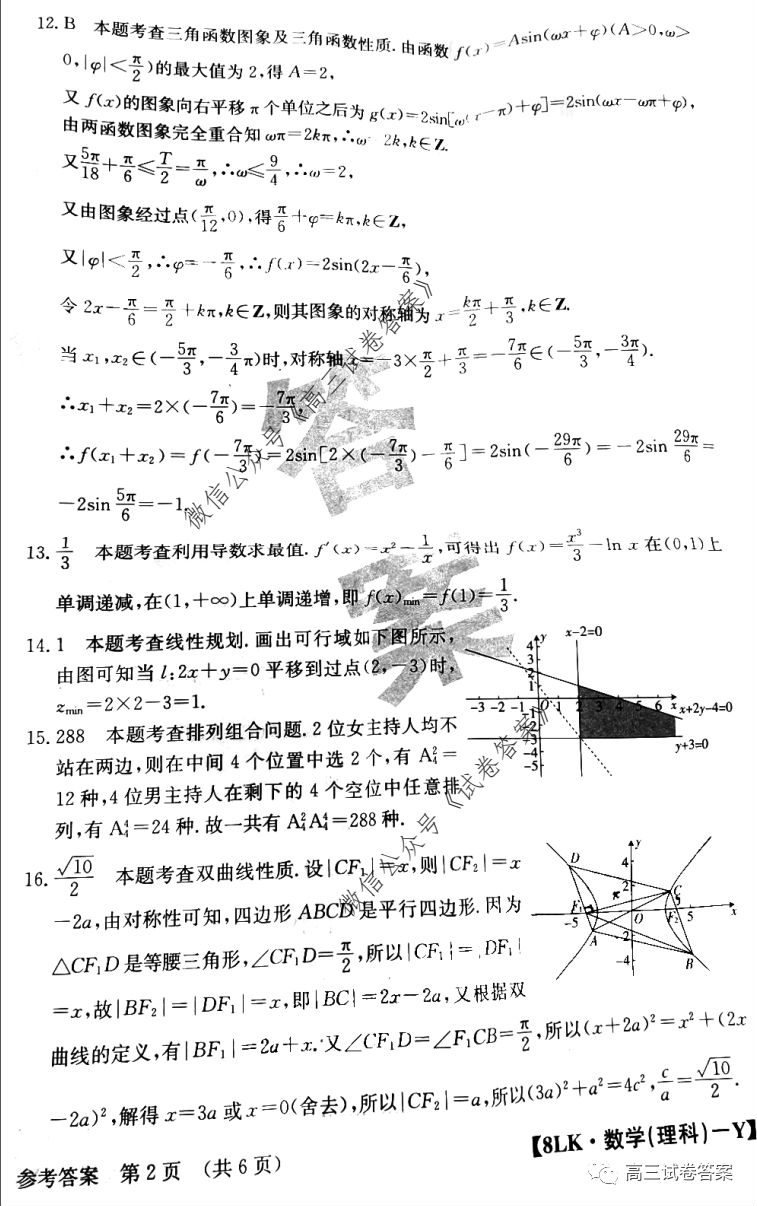 12. B 本题考查三角函数图象及三角函数性质. 由函数 f(x)=Asin(ωx+φ)(A>0,ω>
0,|φ|<π/2)的最大值为2,得 A=2,
又 f(x)的图象向右平移 π 个单位之后为 g(x)=2sin[ω(x-π)+φ]=2sin(ωx-ωπ+φ),
由两函数图象完全重合知 ωπ=2kπ,∴ω 2k,k∈Z.
又5π/18+π/6≤T/2=π/ω,∴ω≤9/4,∴ω=2,
又由图象经过点(π/12,0),得π/6+φ=kπ,k∈Z,
又|φ|<π/2,∴φ=-π/6,∴f(x)=2sin(2x-π/6),
令 2x-π/6=π/2+kπ,k∈Z,则其图象的对称轴为 x=kπ/2+π/3,k∈Z.
当 x₁,x₂∈(-5π/3,-3/4π)时,对称轴 x=-3×π/2+π/3=-7π/6∈(-5π/3,-3π/4).
∴x₁+x₂=2×(-7π/6)=-7π/3,
∴f(x₁+x₂)=f(-7π/3)=2sin[2×(-7π/3)-π/6]=2sin(-29π/6)=-2sin 29π/6=
-2sin 5π/6=-1.
13. 1/3 本题考查利用导数求最值. f′(x)=x²-1/x,可得出 f(x)=x³/3-ln x 在(0,1)上
单调递减,在(1,+∞)上单调递增,即 f(x)min=f(1)=1/3.
14. 1 本题考查线性规划. 画出可行域如下图所示,
由图可知当 l:2x+y=0 平移到过点(2,-3)时,
zmin=2×2-3=1.
y x-2=0
4
3
2
1
-3 -2 -1 O 1 2 3 4 5 6 x x+2y-4=0
-3 y+3=0
-4
-5
15. 288 本题考查排列组合问题. 2 位女主持人均不
站在两边,则在中间 4 个位置中选 2 个,有 A₄²=
12 种,4 位男主持人在剩下的 4 个空位中任意排
列,有 A₄⁴=24 种. 故一共有 A₄²A₄⁴=288 种.
16. √10/2 本题考查双曲线性质. 设|CF₁|=x,则|CF₂|=x
-2a,由对称性可知,四边形 ABCD 是平行四边形. 因为
△CF₁D 是等腰三角形,∠CF₁D=π/2,所以|CF₁|=|DF₁|
=x,故|BF₂|=|DF₁|=x,即|BC|=2x-2a,又根据双
曲线的定义,有|BF₁|=2a+x. 又∠CF₁D=∠F₁CB=π/2,所以(x+2a)²=x²+(2x
-2a)²,解得 x=3a 或 x=0(舍去),所以|CF₂|=a,所以(3a)²+a²=4c²,c/a=√10/2.
D 4 y
2 C
F₁ -5 O F₂ 5 x
A -2
-4 B
【8LK·数学(理科)一Y】
参考答案 第2页 (共6页)
高三试卷答案
微信公众号《高三试卷答案》
答案
微信公众号《试卷答案》